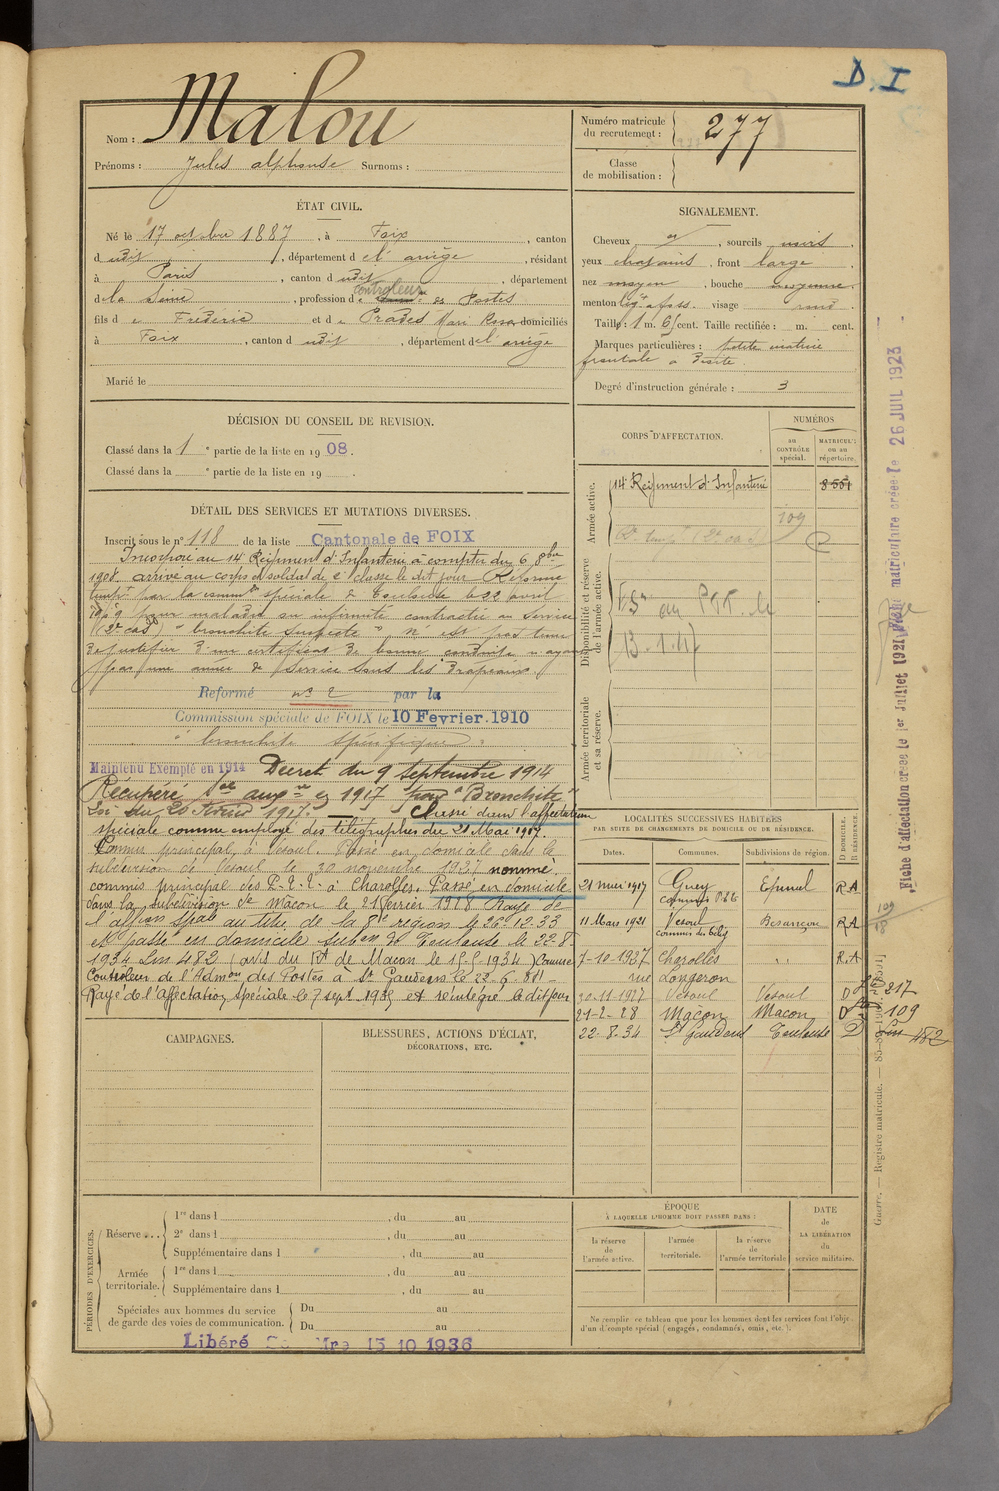 D. I
Nom : Malou
Prénoms : Jules alphonse Surnoms :
Numéro matricule
du recrutement : 277
Classe
de mobilisation :
ÉTAT CIVIL.
Né le 17 octobre 1887, à Foix, canton
dudit, département de l'ariège, résidant
à Paris, canton dudit, département
de la Seine, profession de contrôleur des Postes
fils de Frédéric et de Prades Marie Rose domiciliés
à Foix, canton dudit, département de l'ariège
Marié le
SIGNALEMENT.
Cheveux et, sourcils noirs,
yeux chatains, front large
nez moyen, bouche moyenne,
menton visage rond
Taille : 1 m. 65 cent. Taille rectifiée : m. cent.
Marques particulières : petite cicatrice
frontale a droite
Degré d'instruction générale : 3
DÉCISION DU CONSEIL DE REVISION.
Classé dans la 1e partie de la liste en 1908.
Classé dans la e partie de la liste en 19
CORPS D'AFFECTATION.
NUMÉROS
au
CONTRÔLE
spécial.
MATRICULE
ou au
répertoire.
Armée active.
14e Régiment d'Infanterie 8551
109
Disponibilité et réserve
de l'armée active.
13.1.17
Armée territoriale
et sa réserve.
DÉTAIL DES SERVICES ET MUTATIONS DIVERSES.
Inscrit sous le n° 118 de la liste Cantonale de FOIX
Incorporé au 14e Régiment d'Infanterie à compter du 6 8bre
1908. arrivé au corps et soldat de 2e classe le dit jour Réformé
temp. par la comm. spéciale de Toulouse le 22 avril
1909 pour maladie ou infirmité contractée au service
(2e cas) "bronchite suspecte" n'est pas tenu
de justifier d'un certificat de bonne conduite n'ayant
pas une année de service sous les drapeaux.
Reformé n° 2 par la
Commission spéciale de FOIX le 10 Fevrier 1910
"bronchite spécifique"
Maintenu Exempté en 1914 Decret du 9 Septembre 1914
Récupéré Sce auxre en 1917 pour "Bronchite"
Loi du 20 Février 1917. Classé dans l'affectation
spéciale comme employé des télégraphes du 21 Mai 1917.
Commis principal à Vesoul. Passé en domicile dans la
subdivision de Vesoul le 30 novembre 1927 nommé
commis principal des P.T.T. à Charolles. Passé en domicile
dans la subdivision de Macon le 21 février 1928 Rayé de
l'affon Spale au titre de la 8e région le 26.12.33
et passé en domicile subon de Toulouse le 22-8
1934 Lsn 482 (avis du Rt de Macon le 15-9 1934) Comme
Contrôleur de l'Admon des Postes à St Gaudens le 22-6-34 -
Rayé de l'affectation spéciale le 7 sept. 1935 et réintégré le dit jour
LOCALITÉS SUCCESSIVES HABITÉES
PAR SUITE DE CHANGEMENTS DE DOMICILE OU DE RÉSIDENCE.
D DOMICILE.
R RÉSIDENCE.
Dates. Communes. Subdivisions de région.
21 mai 1917 Gray Epinal R A
commis P.T.T.
11 Mars 1921 Vesoul Besançon R A
commis des télég
7-10-1927 Charolles " R.A
rue Longeron
30-11-1927 Vesoul Vesoul D 217
21-2-28 Macon Macon D 109
22-8-34 St Gaudens Toulouse D Lsn 482
CAMPAGNES.
BLESSURES, ACTIONS D'ÉCLAT,
DÉCORATIONS, ETC.
PÉRIODES D'EXERCICES.
Réserve...
1re dans l , du au
2e dans l , du au
Supplémentaire dans l , du au
Armée
territoriale.
1re dans l , du au
Supplémentaire dans l , du au
Spéciales aux hommes du service
de garde des voies de communication.
Du au
Du au
ÉPOQUE
À LAQUELLE L'HOMME DOIT PASSER DANS :
la réserve
de
l'armée active.
l'armée
territoriale.
la réserve
de
l'armée territoriale
DATE
de
LA LIBÉRATION
du
service militaire.
Ne remplir ce tableau que pour les hommes dont les services font l'objet
d'un décompte spécial (engagés, condamnés, omis, etc.).
Libéré 15 10 1936
Fiche d'affectation créée le 1er Juillet 1921 Fiche matriculaire créée le 26 JUIL 1923
Guerre. — Registre matricule.